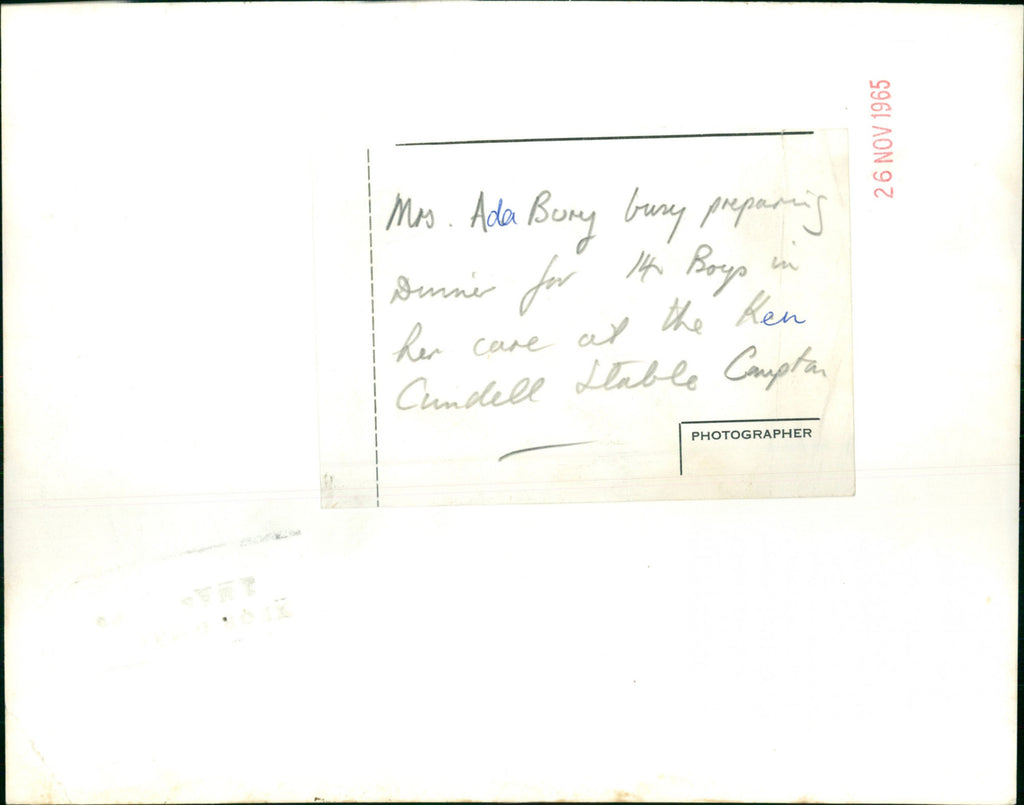 26 NOV 1965
Mrs. Ada Bury busy preparing
Dinner for 14 Boys in
her care at the Ken
Cundell Stable Compton
PHOTOGRAPHER